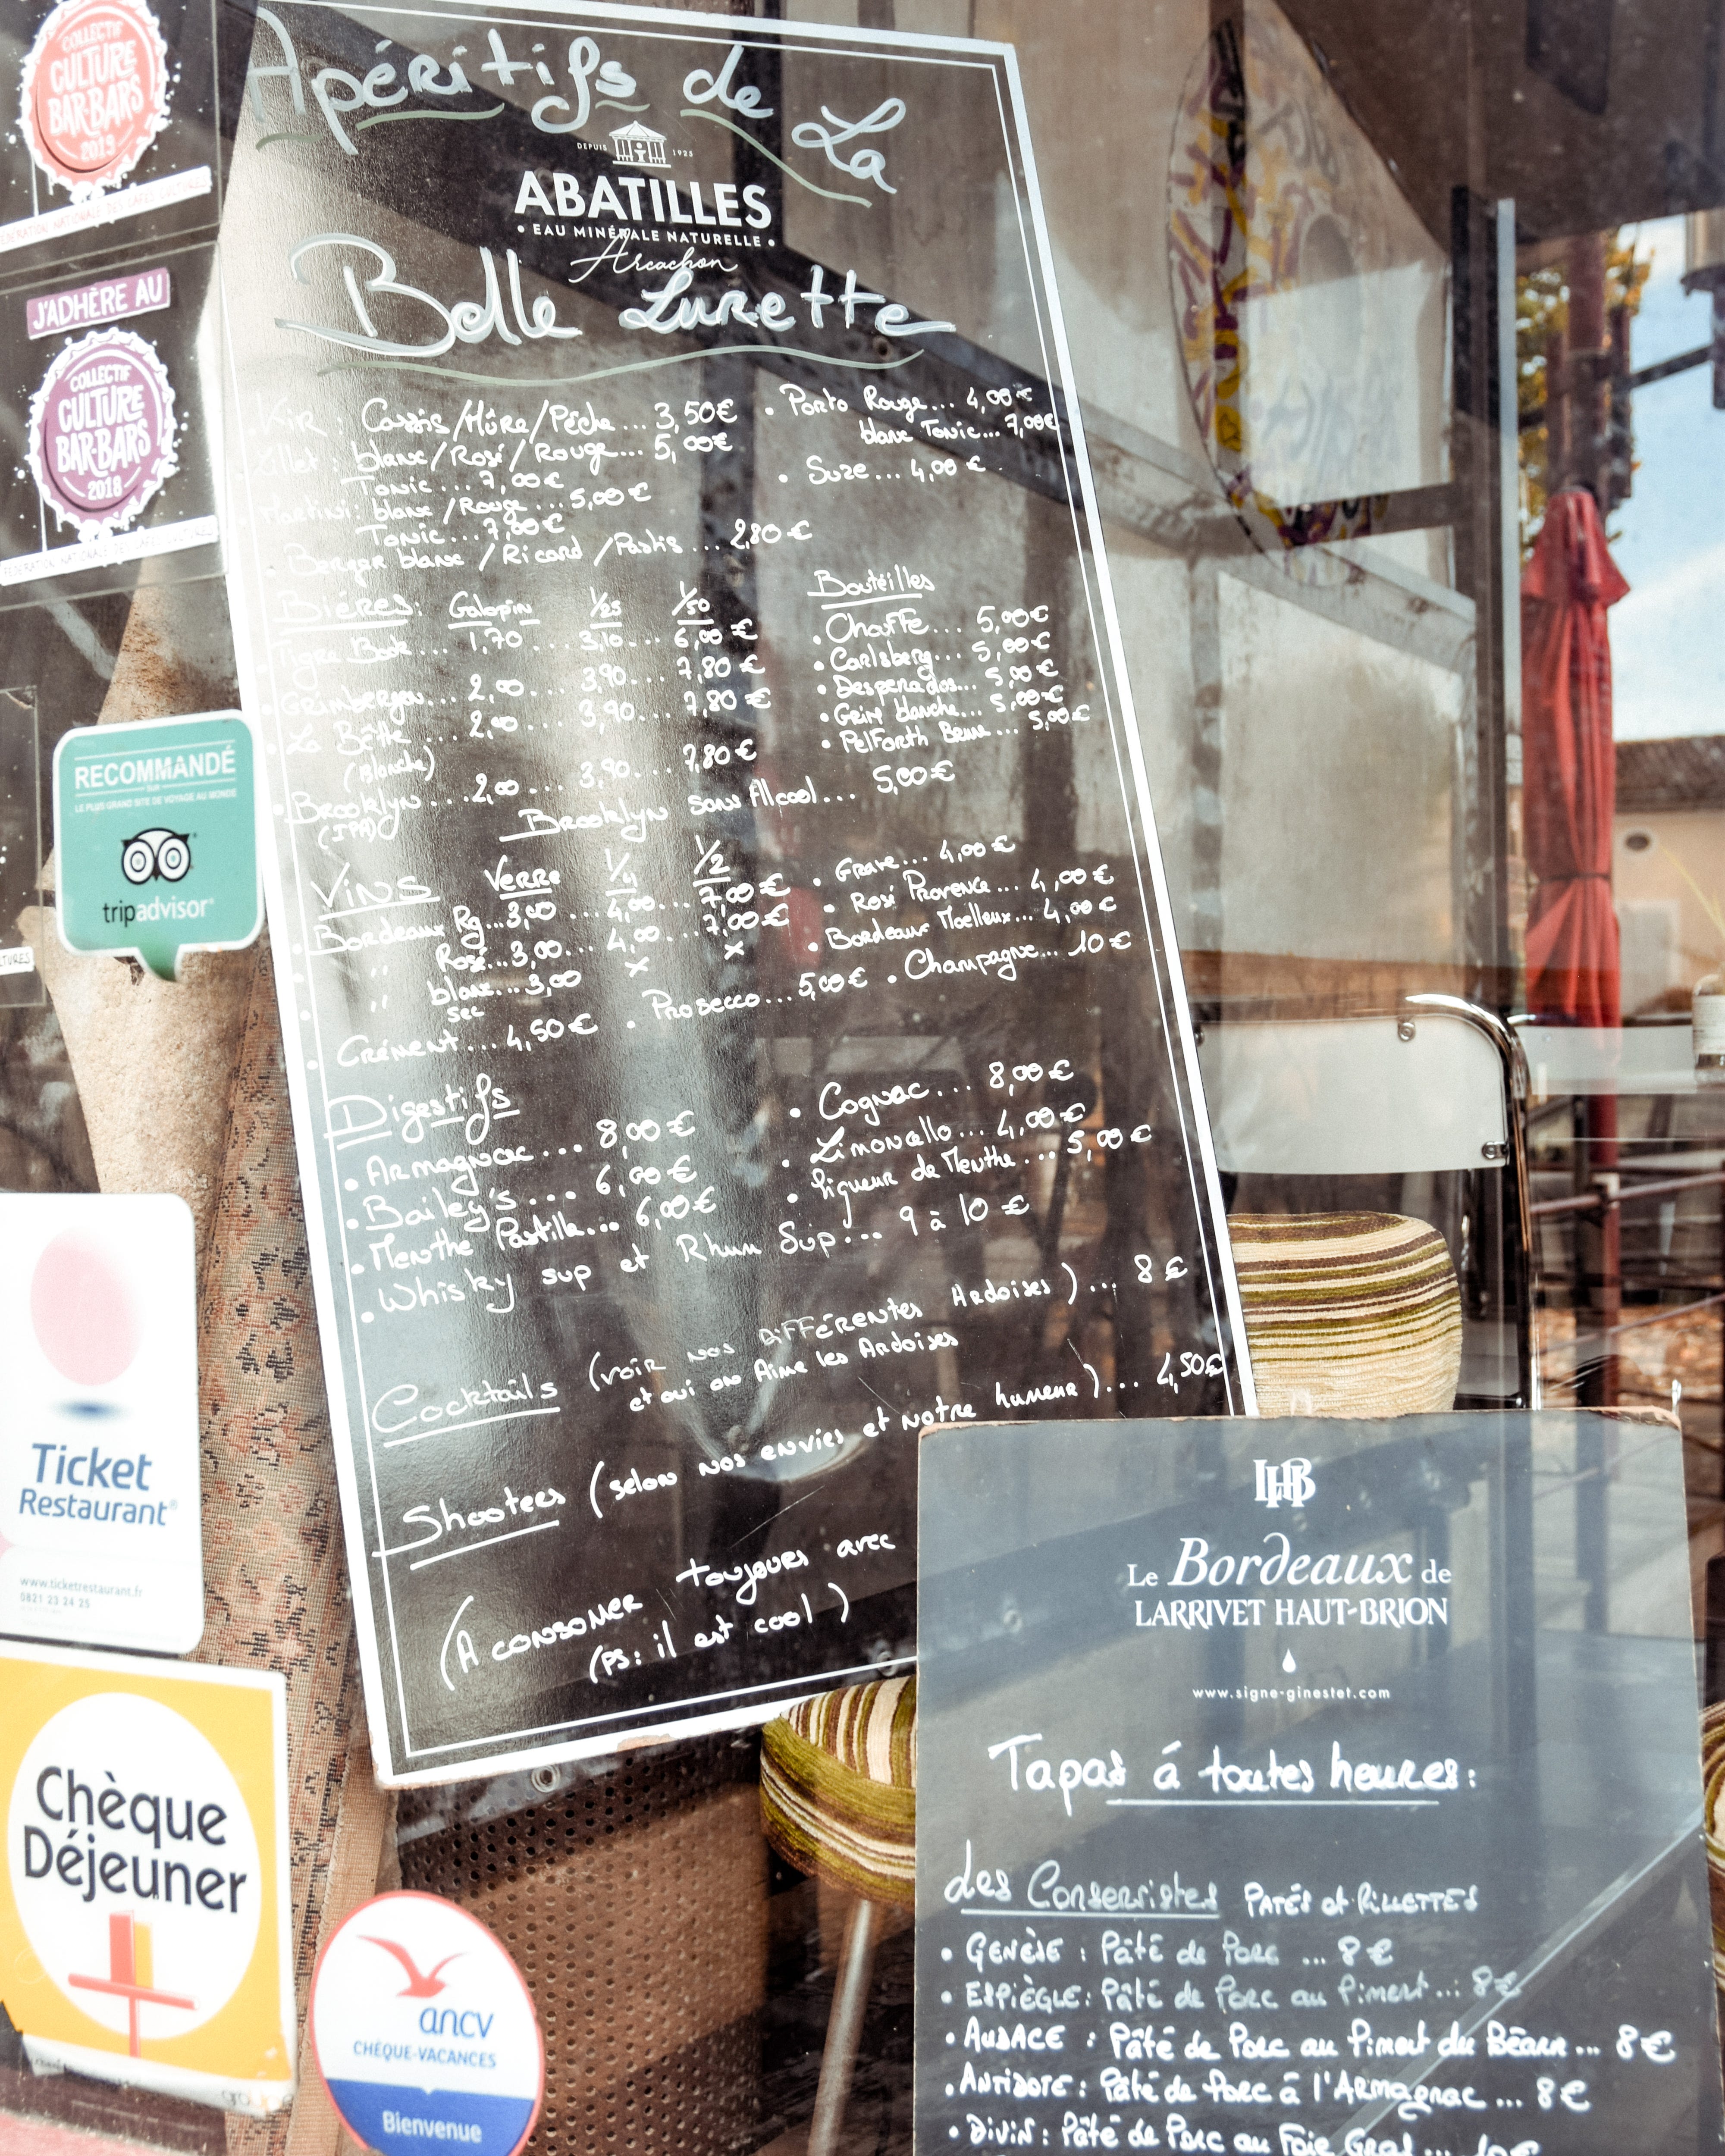 COLLECTIF
CULTURE
BAR-BARS
2019
FÉDÉRATION NATIONALE DES CAFÉS CULTURES
J'ADHÈRE AU
COLLECTIF
CULTURE
BAR-BARS
2018
FÉDÉRATION NATIONALE DES CAFÉS CULTURES
RECOMMANDÉ
SUR
LE PLUS GRAND SITE DE VOYAGE AU MONDE
tripadvisor®
TURES
Ticket
Restaurant®
www.ticketrestaurant.fr
0821 23 24 25
Chèque
Déjeuner
ancv
CHÈQUE-VACANCES
Bienvenue
Apéritifs de La
DEPUIS 1925
ABATILLES
• EAU MINÉRALE NATURELLE •
Arcachon
Belle Lurette
Kir : Cassis/Mûre/Pêche... 3,50€
Lillet : blanc/Rosé/Rouge... 5,00€
Tonic... 7,00€
Martini : blanc/Rouge... 5,00€
Tonic... 7,00€
Berger blanc / Ricard / Pastis... 2,80€
• Porto Rouge... 4,00€
blanc Tonic... 7,00€
• Suze... 4,00€
Bières: Galopin 1/25 1/50
• Tigre Bock... 1,70... 3,10... 6,00€
• Grimbergen... 2,00... 3,90... 7,80€
• La Bête... 2,00... 3,90... 7,80€
(Blanche)
• Brooklyn... 2,00... 3,90... 7,80€
(IPA)
Brooklyn sans Alcool... 5,00€
Bouteilles
• Chouffe... 5,00€
• Carlsberg... 5,00€
• Desperados... 5,00€
• Grim blanche... 5,00€
• PelForth Brune... 5,00€
Vins Verre 1/4 1/2
• Bordeaux Rg...3,00... 4,00... 7,00€
• ,, Rosé...3,00... 4,00... 7,00€
• ,, blanc...3,00 x x
sec
• Crément... 4,50€ • Prosecco... 5,00€ • Champagne... 10€
• Grave... 4,00€
• Rosé Provence... 4,00€
• Bordeaux Moelleux... 4,00€
Digestifs
• Armagnac... 8,00€
• Bailey's... 6,00€
• Menthe Pastille... 6,00€
• Whisky sup et Rhum Sup... 9 à 10€
• Cognac... 8,00€
• Limoncello... 4,00€
• liqueur de Menthe... 5,00€
Cocktails (voir nos différentes Ardoises)... 8€
et oui on Aime les Ardoises
Shooters (selon nos envies et notre humeur)... 4,50€
(A consomer toujours avec
(ps: il est cool)
LHB
Le Bordeaux de
LARRIVET HAUT-BRION
www.signe-ginestet.com
Tapas á toutes heures:
des Conservistes PATÉS et RILLETTES
• GENÈSE : Pâté de Porc ... 8€
• ESPIÈGLE : Pâté de Porc au Piment... 8€
• AUDACE : Pâté de Porc au Piment du Béarn... 8€
• ANTIDOTE : Pâté de Porc à l'Armagnac... 8€
• DIVIN : Pâté de Porc au Foie Gras... 10€